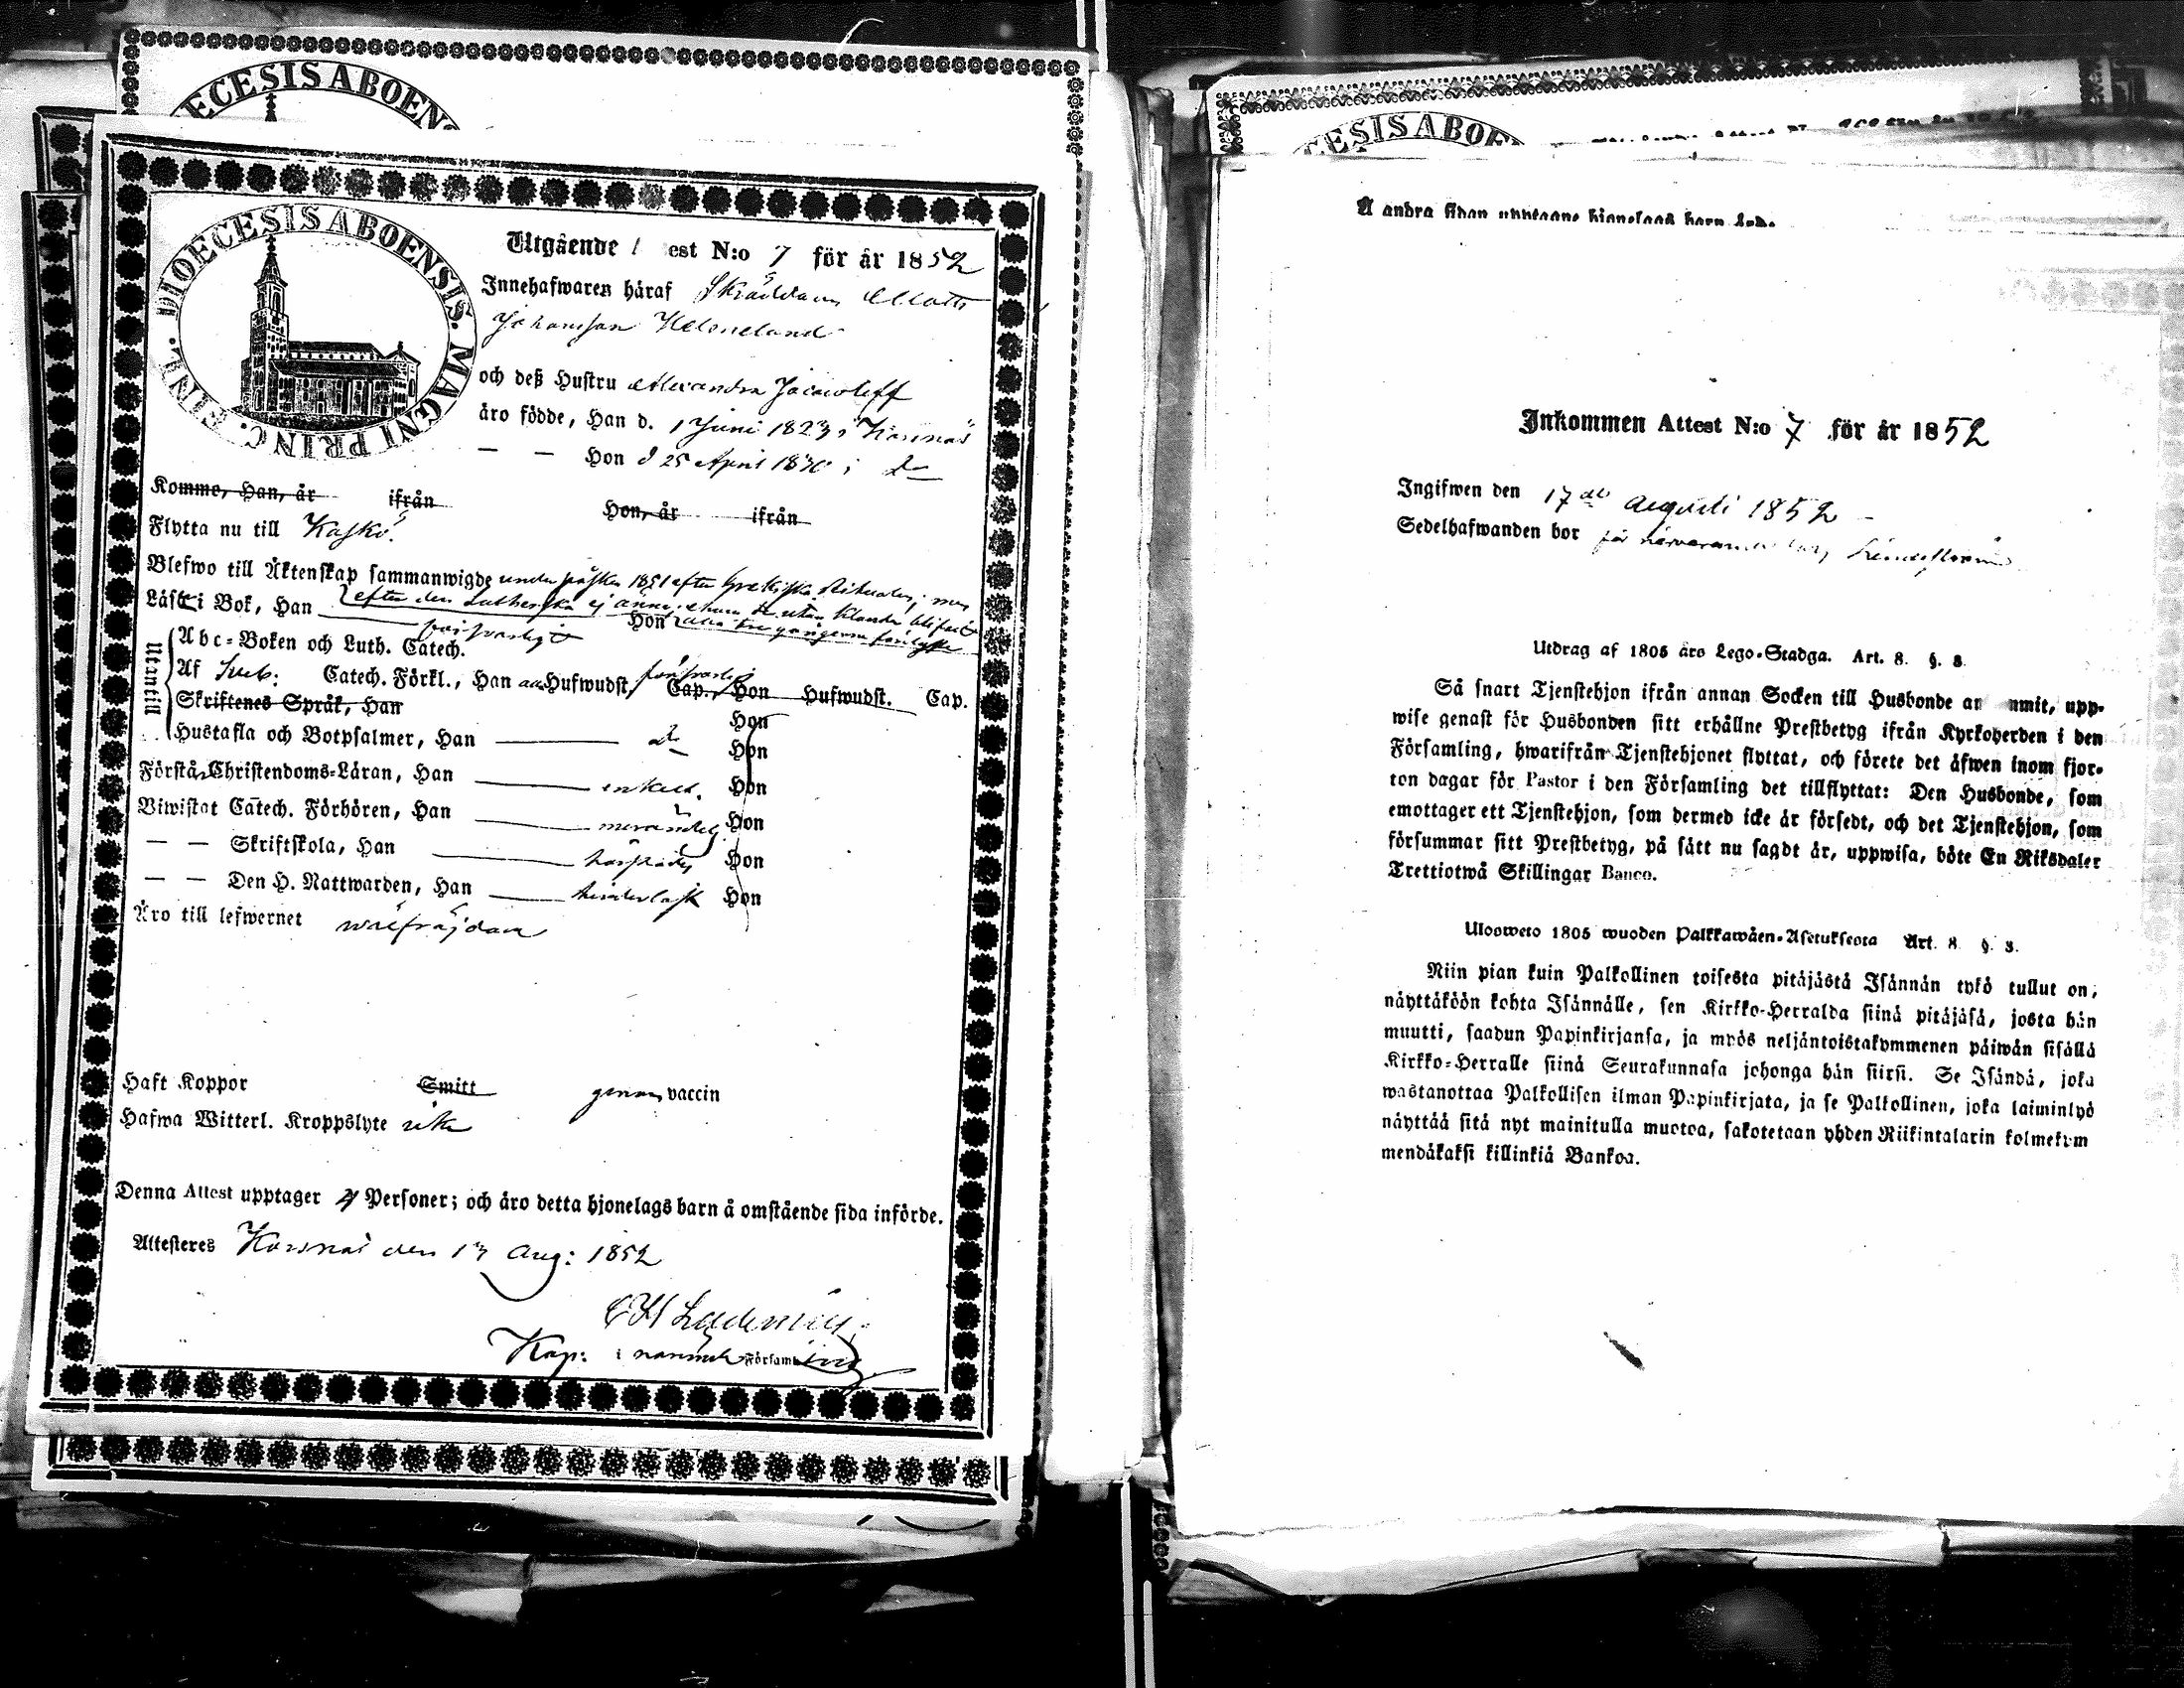 ECESIS ABOEN
DIOECESIS ABOENSIS. MAGNI PRINC. FINL.
Utgående est N:o 7 för år 1852
Innehafwaren häraf Skräddaren Matts
Johansson Helsneland
och deß Hustru Alexandra Jacowleff
äro födde, Han d. 1 Juni 1823 i Korsnäs
— — Hon d 25 April 1830 i do
Komme, Han, år ifrån Hon, år ifrån
Flytta nu till Kaskö.
Blefwo till Äktenskap sammanwigde under påsken 1851 efter Grekiska Ritualen; men
efter den Lutherska ej ännu, ehuru de utan klander blifvit
Läst i Bok, Han Hon alla tre gångerna förelyste
försvarligt
Utantill
Abc-Boken och Luth. Catech.
Af Sveb: Catech. Förkl., Han Hufwudst, försvarligt Cap., Hon Hufwudst. Cap.
Skriftenes Språk, Han Hon
Hustafla och Botpsalmer, Han do Hon
Förstå Christendoms-Läran, Han enkelt. Hon
Biwistat Catech. Förhören, Han Hon
— — Skriftskola, Han Hon
— — Den H. Nattwarden, Han Hon
Äro till lefwernet wälfräjdade
Haft Koppor Smitt genom vaccin
Hafwa Witterl. Kroppslyte icke
Denna Attest upptager 2 Personer; och äro detta hjonelags barn å omstående sida införde.
Attesteres Korsnäs den 13 Aug: 1852
Kap: i Församling
ESIS ABOE
Å andra sidan upptagne hjonelags barn äro.
Inkommen Attest N:o 7 för år 1852
Ingifwen den 17de Augusti 1852
Sedelhafwanden bor
Utdrag af 1805 års Lego-Stadga. Art. 8. §. 8.
Så snart Tjenstehjon ifrån annan Socken till Husbonde an mmit, upp-
wise genast för Husbonden sitt erhållne Prestbetyg ifrån Kyrkoherden i den
Församling, hwarifrån Tjenstehjonet flyttat, och förete det äfwen inom fjor-
ton dagar för Pastor i den Församling det tillflyttat: Den Husbonde, som
emottager ett Tjenstehjon, som dermed icke är försedt, och det Tjenstehjon, som
försummar sitt Prestbetyg, på sätt nu sagdt är, uppwisa, böte En Riksdaler
Trettiotwå Skillingar Banco.
Ulosweto 1805 wuoden Palkkawäen-Asetuksesta Art. 8. §. 3.
Niin pian kuin Palkollinen toisesta pitäjästä Isännän tykö tullut on,
näyttäköön kohta Isännälle, sen Kirkko-Herralda siinä pitäjäsä, josta hän
muutti, saadun Papinkirjansa, ja myös neljäntoistakymmenen päiwän sisällä
Kirkko-Herralle siinä Seurakunnasa johonga hän siirsi. Se Isändä, joka
wastanottaa Palkollisen ilman Papinkirjata, ja se Palkollinen, joka laiminlyö
näyttää sitä nyt mainitulla muotoa, sakotetaan yhden Riikintalarin kolmekym
mendäkaksi killinkiä Bankoa.